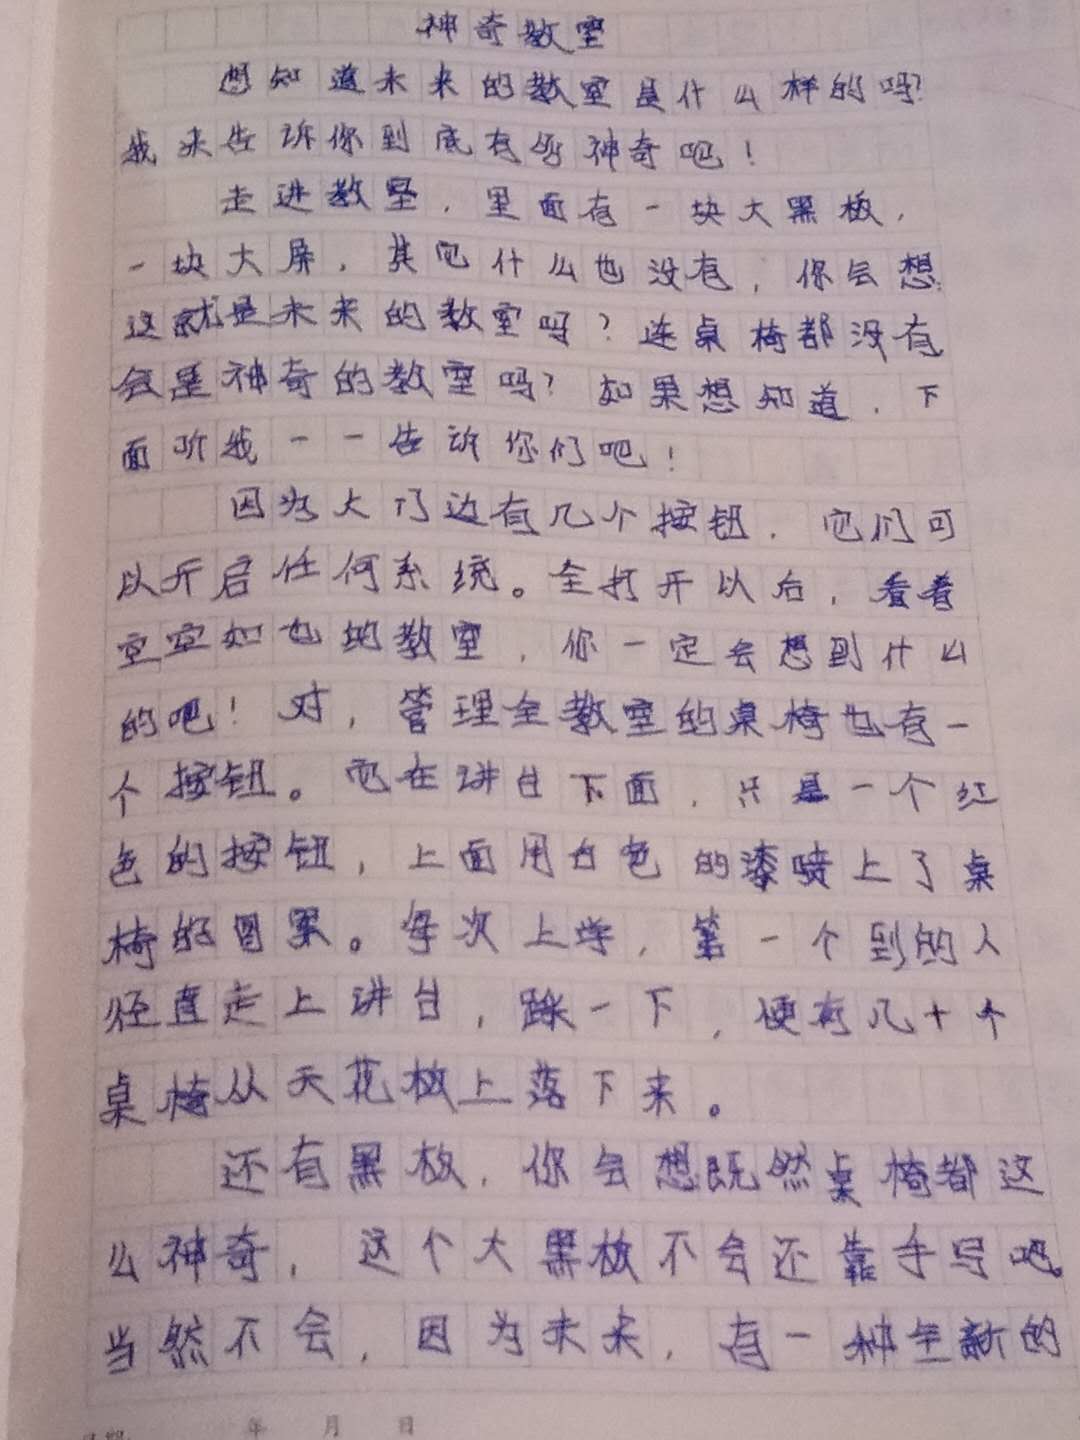 神奇教室
想知道未来的教室是什么样的吗?
我来告诉你到底有多神奇吧!
走进教室,里面有一块大黑板,
一块大屏,其它什么也没有,你会想
这就是未来的教室吗?连桌椅都没有
会是神奇的教室吗?如果想知道,下
面听我一一告诉你们吧!
因为大门边有几个按钮,它们可
以开启任何系统。全打开以后,看着
空空如也地教室,你一定会想到什么
的吧!对,管理全教室的桌椅也有一
个按钮。它在讲台下面,只是一个红
色的按钮,上面用白色的漆喷上了桌
椅的图案。每次上学,第一个到的人
径直走上讲台,踩一下,便有几十个
桌椅从天花板上落下来。
还有黑板,你会想既然桌椅都这
么神奇,这个大黑板不会还靠手写吧。
当然不会,因为未来,有一种全新的
年 月 日